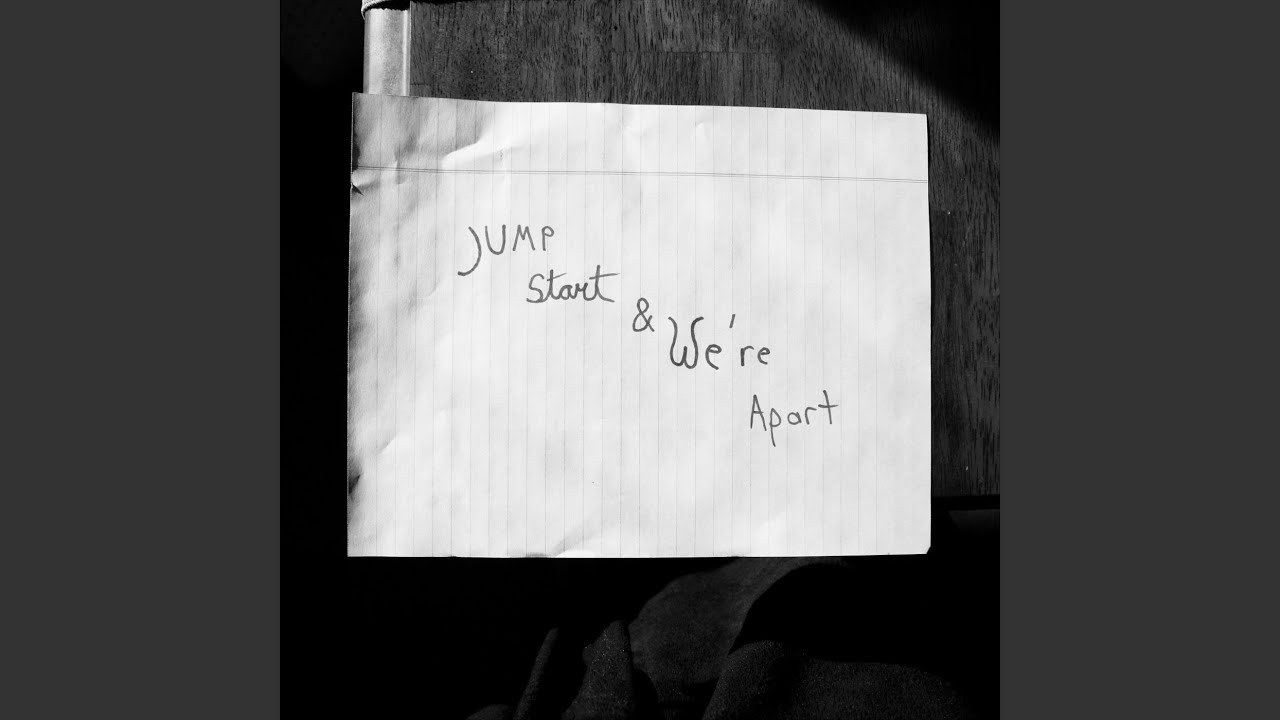 JUMP
Start
&
We're
Apart